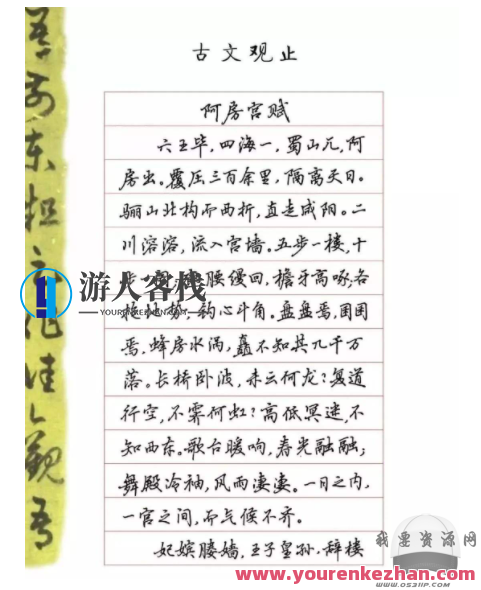 古文观止
阿房宫赋
六王毕,四海一,蜀山兀,阿
房出。覆压三百余里,隔离天日。
骊山北构而西折,直走咸阳。二
川溶溶,流入宫墙。五步一楼,十
步一 腰缦回,檐牙高啄,各
地势,钩心斗角。盘盘焉,囷囷
焉,蜂房水涡,矗不知其几千万
落。长桥卧波,未云何龙?复道
行空,不霁何虹?高低冥迷,不
知西东。歌台暖响,春光融融;
舞殿冷袖,风雨凄凄。一日之内,
一宫之间,而气候不齐。
妃嫔媵嫱,王子皇孙,辞楼
游人客栈
WWW.YOURENKEZHAN.COM
我要资源网
www.yourenkezhan.com